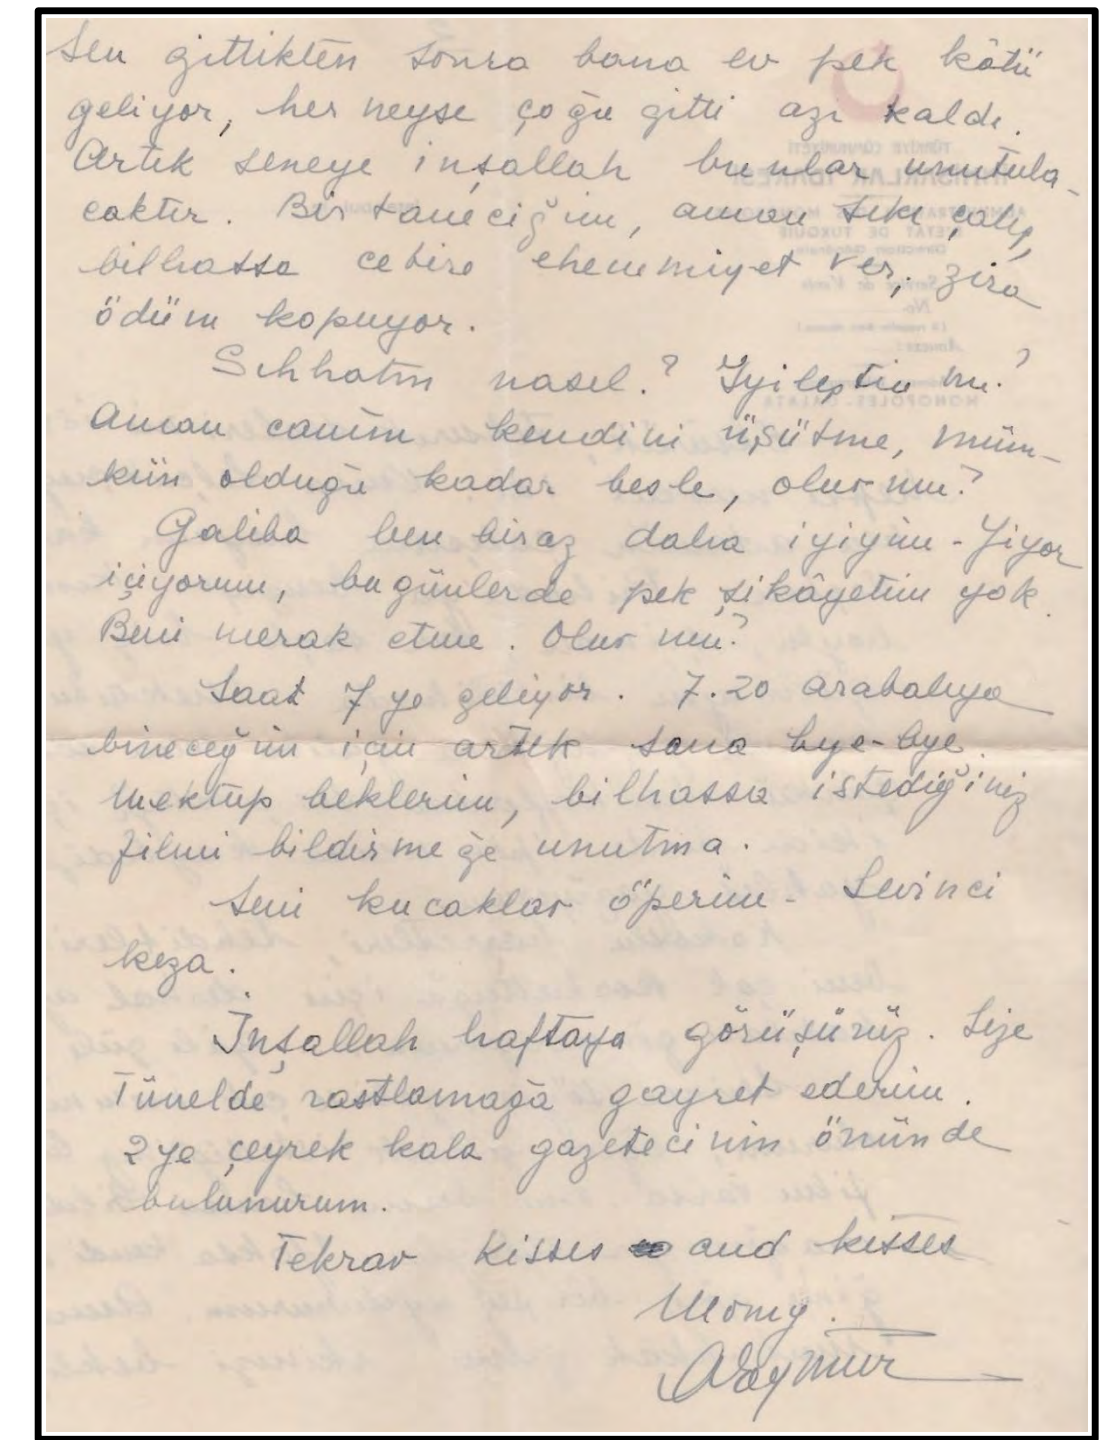 Sen gittikten sonra bana ev pek kötü
geliyor, her neyse çoğu gitti azı kaldı.
Artık seneye inşallah bunlar unutula-
caktır. Bir taneciğim, aman sıkı çalış,
bilhassa cebire ehemmiyet ver, zira
ödüm kopuyor.
Sıhhatın nasıl? İyileştin mi?
Aman canım kendini üşütme, müm-
kün olduğu kadar besle, olur mu?
Galiba ben biraz daha iyiyim - Yiyor
içiyorum, bugünlerde pek şikâyetim yok.
Beni merak etme. Olur mu?
Saat 7 ye geliyor. 7.20 arabalıya
bineceğim için artık sana bye-bye.
Mektup beklerim, bilhassa istediğiniz
filmi bildirmeğe unutma.
Seni kucaklar öperim - Sevinci
keza.
İnşallah haftaya görüşürüz. Size
Tünelde rastlamağa gayret ederim.
2 ye çeyrek kala gazetecinin önünde
bulunurum.
Tekrar kisses and kisses
Momy.